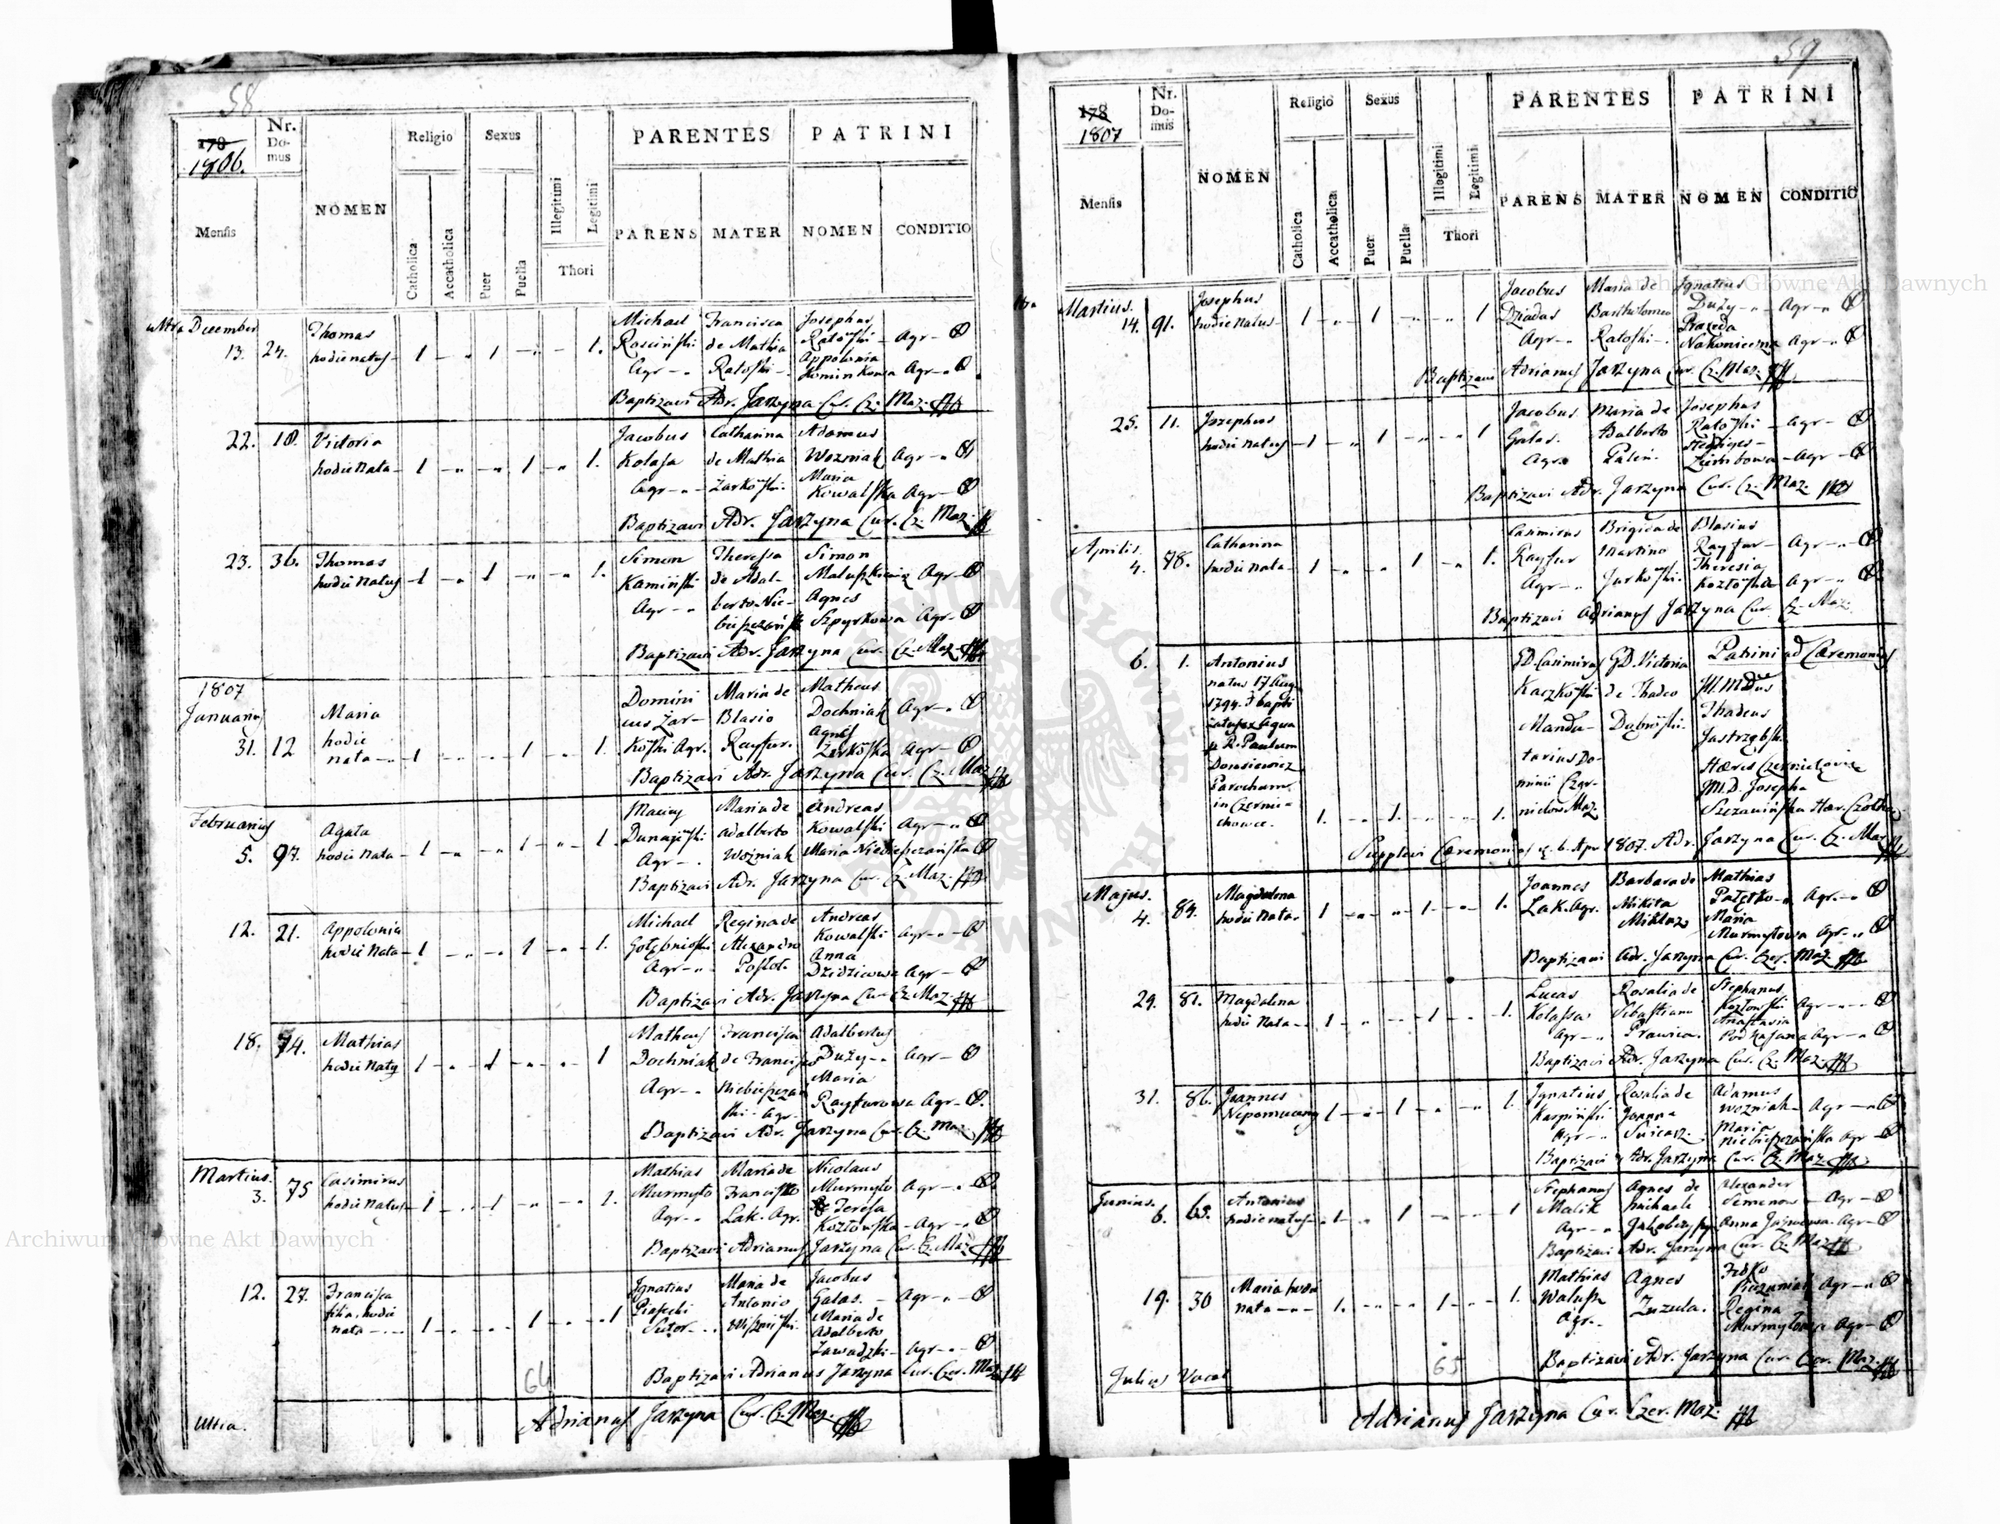 58
178
1806.
Nr.
Do-
mus
Mensis
NOMEN
Religio
Catholica
Accatholica
Sexus
Puer
Puella
Illegitimi
Legitimi
Thori
PARENTES
PATRINI
PARENS
MATER
NOMEN
CONDITIO
December
13. 24. Thomas
hodie natus 1 1 1.
Michael Francisca Josephus
de Mathia Agr
Agr Appolonia
Agr
Baptizavi Adr. Jarzyna Cur. Cz. Maz.
22. 18. Victoria
hodie nata 1 1 1.
Jacobus Catharina Adamus
Kolasa de Mathia Wozniak Agr
Agr Maria
Kowalska Agr
Baptizavi Adr. Jarzyna Cur. Cz. Maz.
23. 36. Thomas
hodie natus 1 1 1.
Simon Theressa Simon
Kamiński de Adal- Agr
Agr berto Nie- Agnes
Szpyrkowa Agr
Baptizavi Adr. Jarzyna Cur. Cz. Maz.
1807
Januarius
31. 12 Maria
hodie
nata 1 1 1.
Domini Maria de Matheus
cus Żar- Blasio Dochniak Agr
kóski Agr. Rayfur. Agnes
Żarkóska Agr
Baptizavi Adr. Jarzyna Cur. Cz. Maz.
Februarius
5. 97. Agata
hodie nata 1 1 1.
Maria de Andreas
Adalberto Kowalski Agr
Agr Woźniak Maria Niebieszczańska
Baptizavi Adr. Jarzyna Cur. Cz. Maz.
12. 21. Appolonia
hodie nata 1 1 1.
Michael Regina de Andreas
Gołębnioski Alexandro Kowalski Agr
Agr Anna
Agr
Baptizavi Adr. Jarzyna Cur. Cz. Maz.
18. 74. Mathias
hodie natus 1 1 1
Matheus Francisca Adalbertus
Dochniak de Francisco Duży Agr
Agr Maria
Agr. Rayfurowa Agr
Baptizavi Adr. Jarzyna Cur. Cz. Maz.
Martius.
3. 75 Casimirus
hodie natus 1 1 1.
Mathias Maria de Nicolaus
Murmyło Francisco Murmyło Agr
Agr Lak. Agr. Teresa
Kozłowska Agr
Baptizavi Adrianus Jarzyna Cur. Cz. Maz.
12. 27. Francisca
filia hodie
nata 1 1 1
Ignatius Maria de Jacobus
Piasecki Antonio Galas. Agr
Sutor Maria de
Adalberto
Zawadzki Agr
Baptizavi Adrianus Jarzyna Cur. Czer. Maz.
64
Ultra.
Adrianus Jarzyna Cur. Cz. Maz.
59
178
1807
Nr.
Do-
mus
Mensis
NOMEN
Religio
Catholica
Accatholica
Sexus
Puer
Puella
Illegitimi
Legitimi
Thori
PARENTES
PATRINI
PARENS
MATER
NOMEN
CONDITIO
Martius.
14. 91. Josephus
hodie natus 1 1 1
Jacobus Maria de Ignatius
Dziadus Bartholomeo Duży Agr
Agr Praxeda
Nakonieczna Agr
Baptizavi Adrianus Jarzyna Cur. Cz. Maz.
25. 11. Josephus
hodie natus 1 1 1
Jacobus Maria de Josephus
Galas. Adalberto Agr
Agr
Agr
Baptizavi Adr. Jarzyna Cur. Cz. Maz.
Aprilis
4. 78. Catharina
hodie nata 1 1 1.
Casimirus Brigida de Blasius
Rayfur Martino Rayfur Agr
Agr Theresia
Agr
Baptizavi Adrianus Jarzyna Cur. Cz. Maz.
6. 1. Antonius
natus 17 Aug.
1794. baptizatus ex aqua
a R. Paulum
Parochum
in Czernie-
chowce. 1. 1. 1.
GD. Casimirus GD. Victoria Patrini ad Cæremonias
Kaczkóski de Thadeo
Manda- Thadeus
tarius Do- Jastrzębski
minii Czer- Hæres
M.D. Josepha
Supplevi Cæremonias 6. Apr 1807. Adr. Jarzyna Cur. Cz. Maz.
Majus.
4. 84. Magdalena
hodie nata 1 1 1.
Joannes Barbara de Mathias
Lak. Agr. Nikita Agr.
Maria
Murmyłowa Agr.
Baptizavi Adr. Jarzyna Cur. Czer. Maz.
29. 81. Magdalena
hodie nata 1 1 1.
Lucas Rosalia de Stephanus
Kolassa Sebastiano Kozłowski Agr
Agr Prawica. Anastasia
Agr
Baptizavi Adr. Jarzyna Cur. Cz. Maz.
31. 86. Joannes
Nepomucenus 1 1 1.
Ignatius Rosalia de Adamus
Karpiński Joanna Wozniak Agr
Agr Maria
Niebieszczańska Agr
Baptizavi Adr. Jarzyna Cur. Cz. Maz.
Junius.
6. 65. Antonius
hodie natus 1 1 1.
Stephanus Agnes de Alexander
Malik Michaele Semenow Agr
Agr Anna Agr
Baptizavi Adr. Jarzyna Cur. Cz. Maz.
19. 30 Maria hodie
nata 1. 1 1.
Mathias Agnes
Zuzula. Agr
Agr. Regina
Murmyłowa Agr
Baptizavi Adr. Jarzyna Cur. Czer. Maz.
Julius Vacat
65
Adrianus Jarzyna Cur. Czer. Maz.
Archiwum Główne Akt Dawnych
Archiwum Główne Akt Dawnych
ARCHIWUM GŁÓWNE AKT DAWNYCH